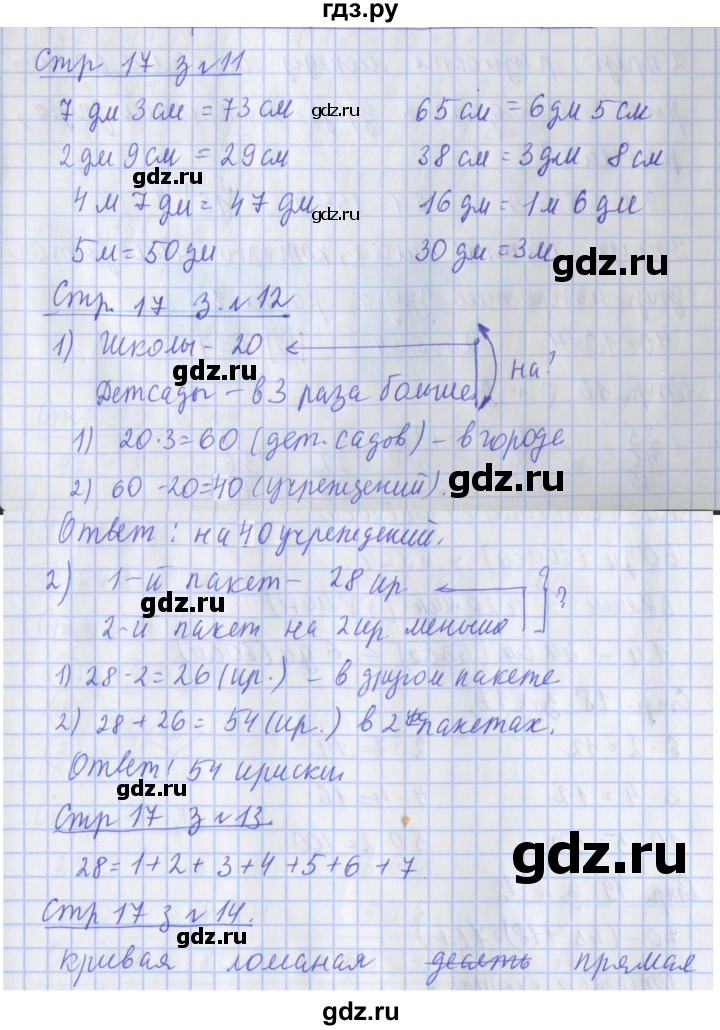 гдз.ру
Стр. 17 з №11
7 дм 3 см = 73 см 65 см = 6 дм 5 см
2 дм 9 см = 29 см 38 см = 3 дм 8 см
4 м 7 дм = 47 дм 16 дм = 1 м 6 дм
5 м = 50 дм 30 дм = 3 м
Стр. 17 з. №12
1) Школы - 20
на?
Детсады - в 3 раза больше
1) 20·3=60 (дет. садов) - в городе
2) 60 - 20=40 (учреждений).
Ответ: на 40 учреждений.
2) 1-й пакет - 28 ир ?
2-й пакет на 2 ир. меньше
1) 28 - 2 = 26 (ир.) - в другом пакете
2) 28 + 26 = 54 (ир.) в 2-ух пакетах.
Ответ: 54 ириски
Стр 17 з №13.
28 = 1 + 2 + 3 + 4 + 5 + 6 + 7
Стр 17 з №14.
кривая ломаная десять прямая
gdz.ru
gdz.ru
gdz.ru
gdz.ru
gdz.ru
gdz.ru
gdz.ru
gdz.ru
gdz.ru
gdz.ru
gdz.ru
gdz.ru
gdz.ru
гдз.ру